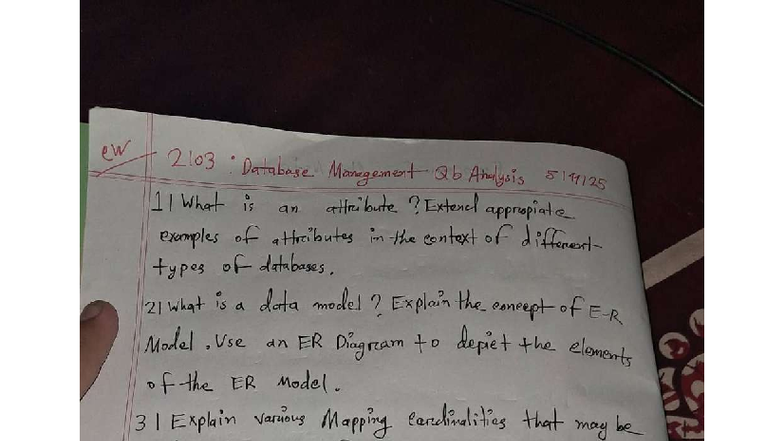 CW
2103 : Database Management Qb Analysis 5/9/25
1| What is an attribute ? Extend appropiate
examples of attributes in the context of different
types of databases.
2| What is a data model ? Explain the concept of E-R
Model. Use an ER Diagram to depict the elements
of the ER Model.
3 | Explain various Mapping Cardinalities that may be